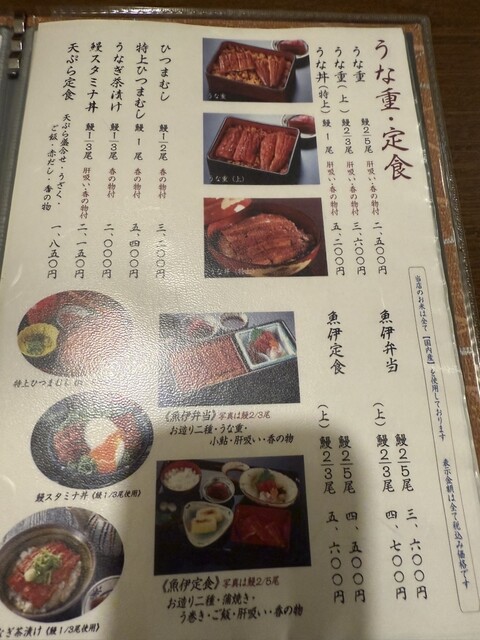 うな重・定食
うな重 鰻2/5尾 肝吸い・香の物付 二、五〇〇円
うな重(上) 鰻2/3尾 肝吸い・香の物付 三、六〇〇円
うな丼(特上) 鰻1尾 肝吸い・香の物付 五、二〇〇円
ひつまむし 鰻1/2尾 肝吸い・香の物付 三、二〇〇円
特上ひつまむし 鰻1尾 肝吸い・香の物付 五、四〇〇円
うなぎ茶漬け 鰻1/3尾 香の物付 二、〇〇〇円
鰻スタミナ丼 鰻1/3尾 肝吸い・香の物付 二、一五〇円
天ぷら定食 天ぷら盛合せ・うざく・
ご飯・赤だし・香の物 一、八五〇円
うな重
うな重(上)
うな丼(特上)
当店のお米は全て【国内産】を使用しております 表示金額は全て税込み価格です
魚伊弁当 鰻2/5尾 三、六〇〇円
(上) 鰻2/3尾 四、七〇〇円
魚伊定食 鰻2/5尾 四、五〇〇円
(上) 鰻2/3尾 五、六〇〇円
特上ひつまむし
《魚伊弁当》写真は鰻2/3尾
お造り二種・うな重・
小鮎・肝吸い・香の物
鰻スタミナ丼《鰻1/3尾使用》
《魚伊定食》写真は鰻2/5尾
お造り二種・蒲焼き・
う巻き・ご飯・肝吸い・香の物
なぎ茶漬け《鰻1/3尾使用》